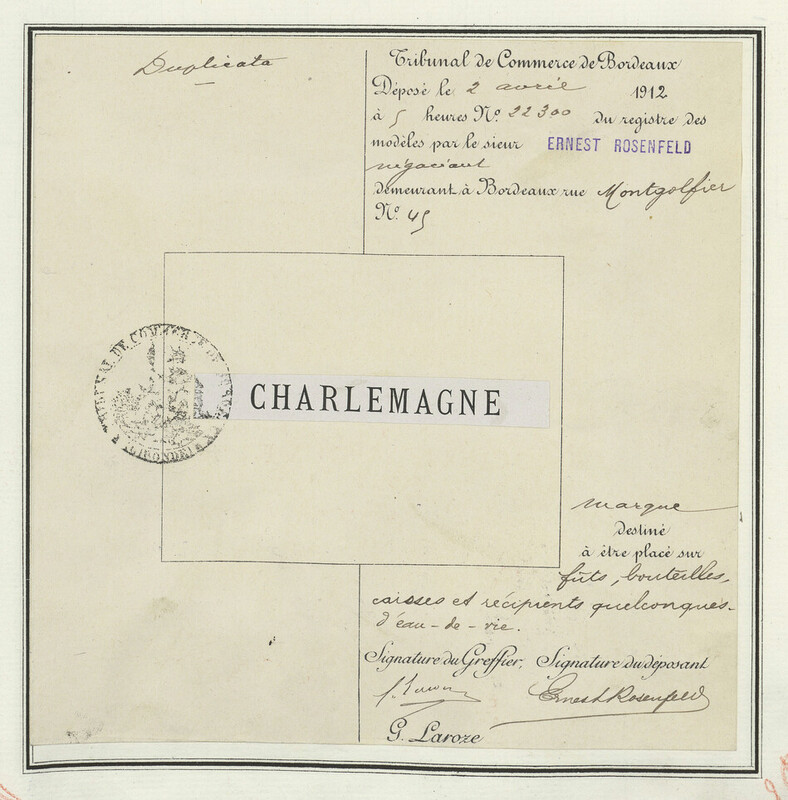 Duplicata
Tribunal de Commerce de Bordeaux
Déposé le 2 avril 1912
à 5 heures No. 22300 du registre des
modèles par le sieur ERNEST ROSENFELD
négociant
demeurant à Bordeaux rue Montgolfier
No. 45
TRIBUNAL DE COMMERCE DE BORDEAUX
GIRONDE
CHARLEMAGNE
marque
destiné
à être placé sur
fûts, bouteilles,
caisses et récipients quelconques
d'eau-de-vie.
Signature du Greffier, Signature du déposant
Ernest Rosenfeld
G. Laroze